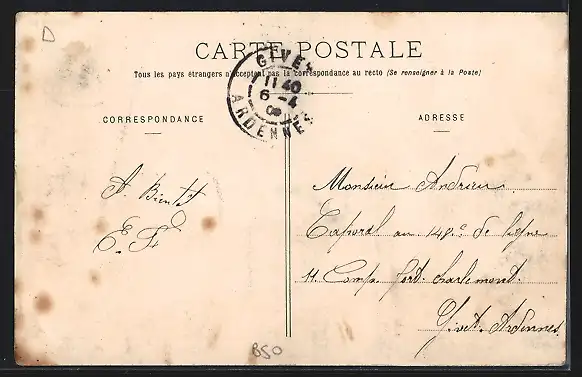 D
CARTE POSTALE
Tous les pays étrangers n'acceptent pas la correspondance au recto (Se renseigner à la Poste)
GIVET
11 40
6 - 4
ARDENNES
CORRESPONDANCE
ADRESSE
A Bientot
E. F
Monsieur Andrieu
Caporal au 148e de ligne
11 Comp. fort. charlemont.
Givet. Ardennes
B50